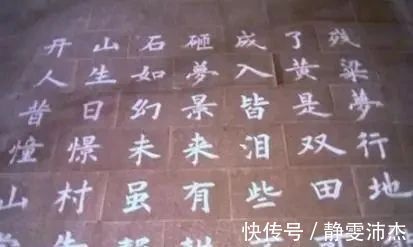 开山石砸成了残
人生如夢入黄粱
昔日幻景皆是夢
憧憬未来泪双行
山村虽有些田地
快传号 / 静雯沛杰